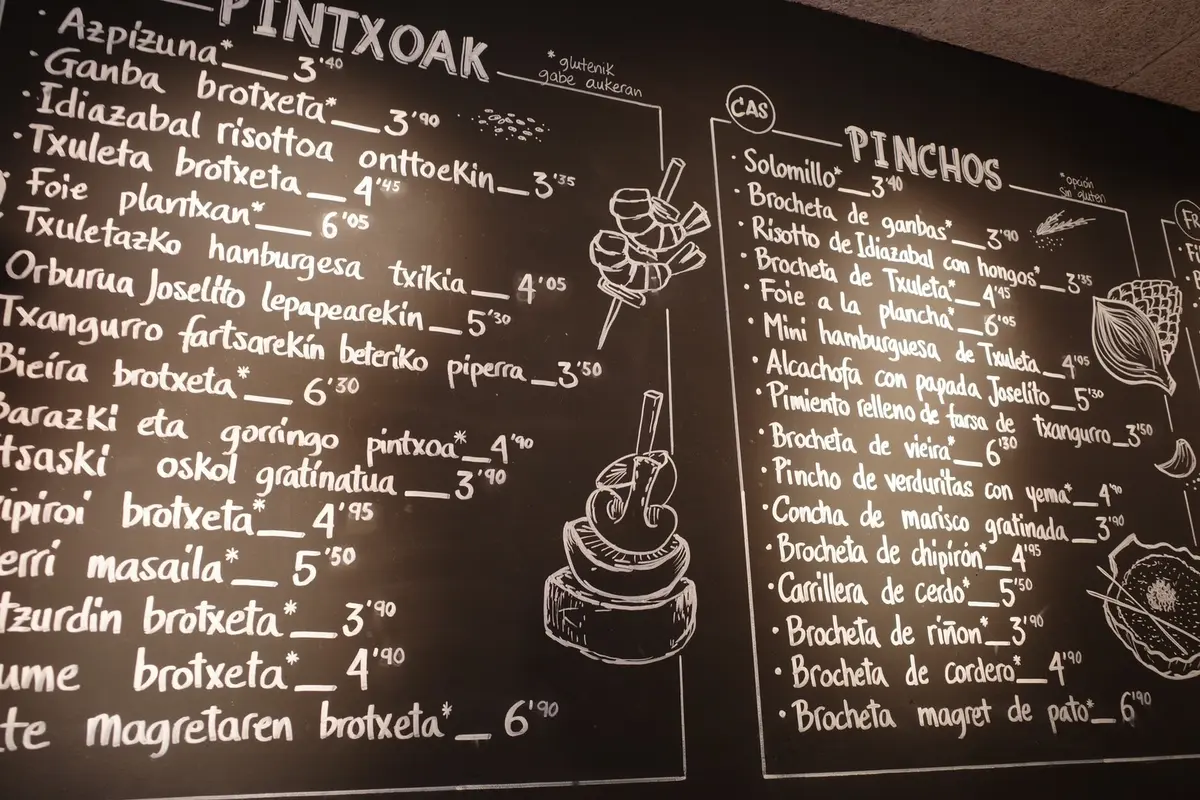 PINTXOAK
* glutenik
gabe aukeran
· Azpizuna*__3'40
· Ganba brotxeta*__3'90
· Idiazabal risottoa onttoekin__3'35
· Txuleta brotxeta__4'45
· Foie plantxan*__6'05
Txuletazko hanburgesa txikia__4'05
Orburua Joselito lepapearekin__5'30
Txangurro fartsarekin beteriko piperra__3'50
Bieira brotxeta*__6'30
Barazki eta gorringo pintxoa*__4'90
tsaski oskol gratinatua__3'90
ipiroi brotxeta*__4'95
erri masaila*__5'50
tzurdin brotxeta*__3'90
ume brotxeta*__4'90
te magretaren brotxeta*__6'90
CAS
PINCHOS
*opción
sin gluten
· Solomillo*__3'40
· Brocheta de ganbas*__3'90
· Risotto de Idiazabal con hongos*__3'35
· Brocheta de Txuleta*__4'45
· Foie a la plancha*__6'05
· Mini hamburguesa de Txuleta__4'05
· Alcachofa con papada Joselito__5'30
· Pimiento relleno de farsa de txangurro__3'50
· Brocheta de vieira*__6'30
· Pincho de verduritas con yema*__4'90
· Concha de marisco gratinada__3'90
· Brocheta de chipirón*__4'95
· Carrillera de cerdo*__5'50
· Brocheta de riñon*__3'90
· Brocheta de cordero*__4'90
· Brocheta magret de pato*__6'90
FR